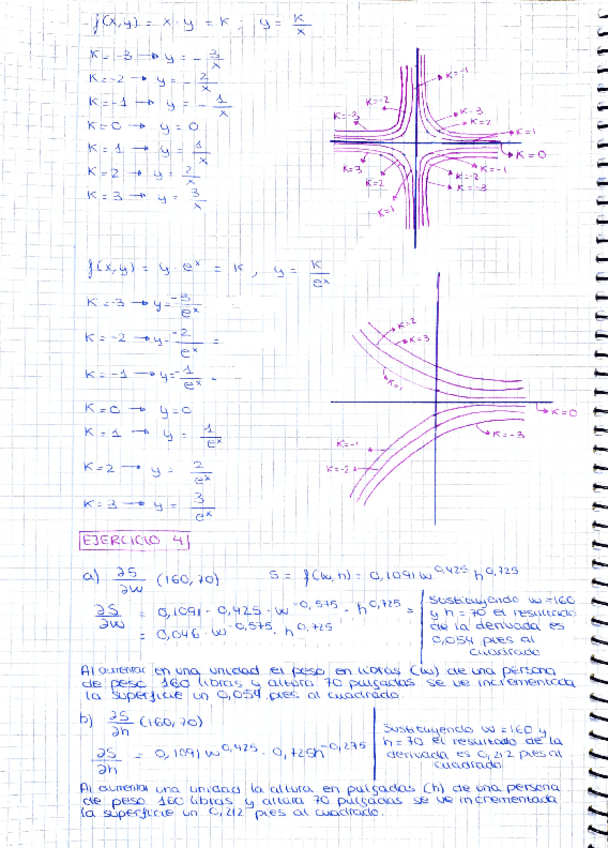 - f(x,y) = x · y = K ; y = K/x
K = -3 → y = - 3/x
K = -2 → y = - 2/x
K = -1 → y = - 1/x
K = 0 → y = 0
K = 1 → y = 1/x
K = 2 → y = 2/x
K = 3 → y = 3/x
K=-1
K=-2
K=-3
K=3
K=2
K=1
K=0
K=3
K=2
K=1
K=-1
K=-2
K=-3
f(x,y) = y · e^x = K , y = K/e^x
K = -3 → y = -3/e^x
K = -2 → y = -2/e^x =
K = -1 → y = -1/e^x -
K = 0 → y = 0
K = 1 → y = 1/e^x
K = 2 → y = 2/e^x
K = 3 → y = 3/e^x
K=2
K=3
K=1
K=0
K=-1
K=-2
K=-3
EJERCICIO 4
a) ∂S/∂w (160, 70) S = f(w,h) = 0,1091 w^0,425 h^0,725
∂S/∂w = 0,1091 · 0,425 · w^-0,575 · h^0,725 =
= 0,046 · w^-0,575 · h^0,725
Sustituyendo w=160
y h=70 el resultado
de la derivada es
0,054 pies al
cuadrado
Al aumentar en una unidad el peso en libras (w) de una persona
de peso 160 libras y altura 70 pulgadas se ve incrementada
la superficie un 0,054 pies al cuadrado.
b) ∂S/∂h (160, 70)
∂S/∂h = 0,1091 w^0,425 · 0,725h^-0,275
Sustituyendo w=160 y
h=70 el resultado de la
derivada es 0,212 pies al
cuadrado
Al aumentar una unidad la altura en pulgadas (h) de una persona
de peso 160 libras y altura 70 pulgadas se ve incrementada
la superficie un 0,212 pies al cuadrado.